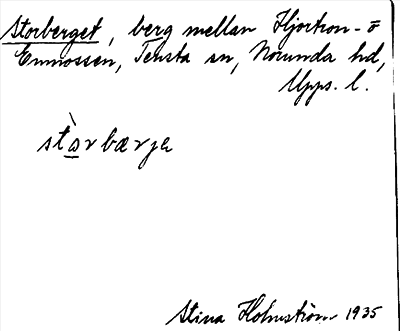 Storberget, berg mellan Hjortron- o
Enmossen, Tensta sn, Norunda hd,
Upps. l.
stòrbærja
Stina Holmström 1935